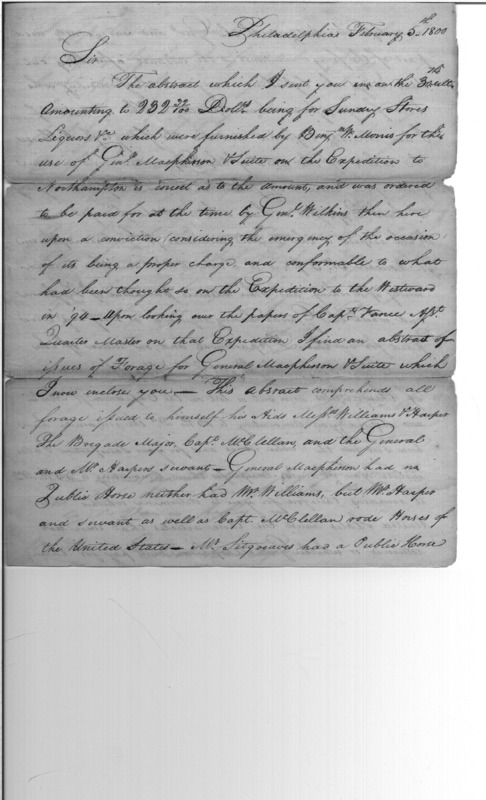 Philadelphia February 5th. 1800
Sir
The abstract which I sent you in on the 3d ulto.
Amounting to 232 Dolls. being for Sundry Stores
Liquors &ca. which were furnished by Benjn. W. Morris for the
use of Genl. Macpherson & Suite on the Expedition to
Northampton is correct as to the amount, and was ordered
to be paid for at the time by Genl. Wilkins then here
upon a conviction (considering the emergency of the occasion
of its being a proper charge, and conformable to what
had been thought so on the Expedition to the Westward
in '94 – Upon looking over the papers of Capn. Vance Asst.
Quarter Master on that Expedition I find an abstract of
issues of Forage for General Macpherson & Suite which
I now inclose you — This absract comprehends all
forage issued to himself his Aids Messrs. Williams & Harper
The Brigade Major, Capt. McClellan, and the General
and Mr. Harpers servant – General Macpherson had no
Public Horse neither had Mr. Williams, but Mr. Harper
and servant as well as Capt. McClellan rode Horses of
the United States – Mr. Sitgreaves had a Public Horse